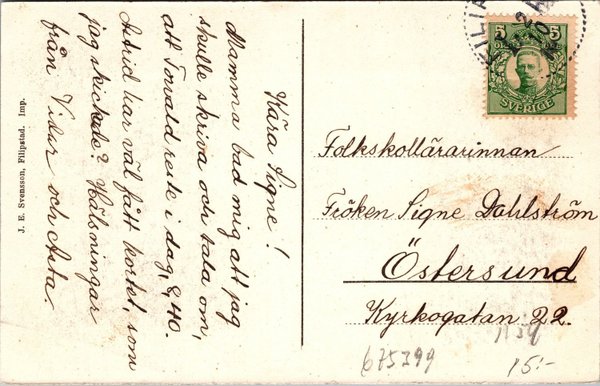 Kära Signe!
Mamma bad mig att jag
skulle skriva och tala om,
att Tonald reste i dag, 8,40.
Astrid har väl fått kortet, som
jag skickade? Hälsningar
från Vidur och Asta.
J. E. Svensson, Filipstad. Imp.
5 5
SVERIGE
Folkskollärarinnan
Fröken Signe Dahlström
Östersund
Kyrkogatan 22.
675399
15:-